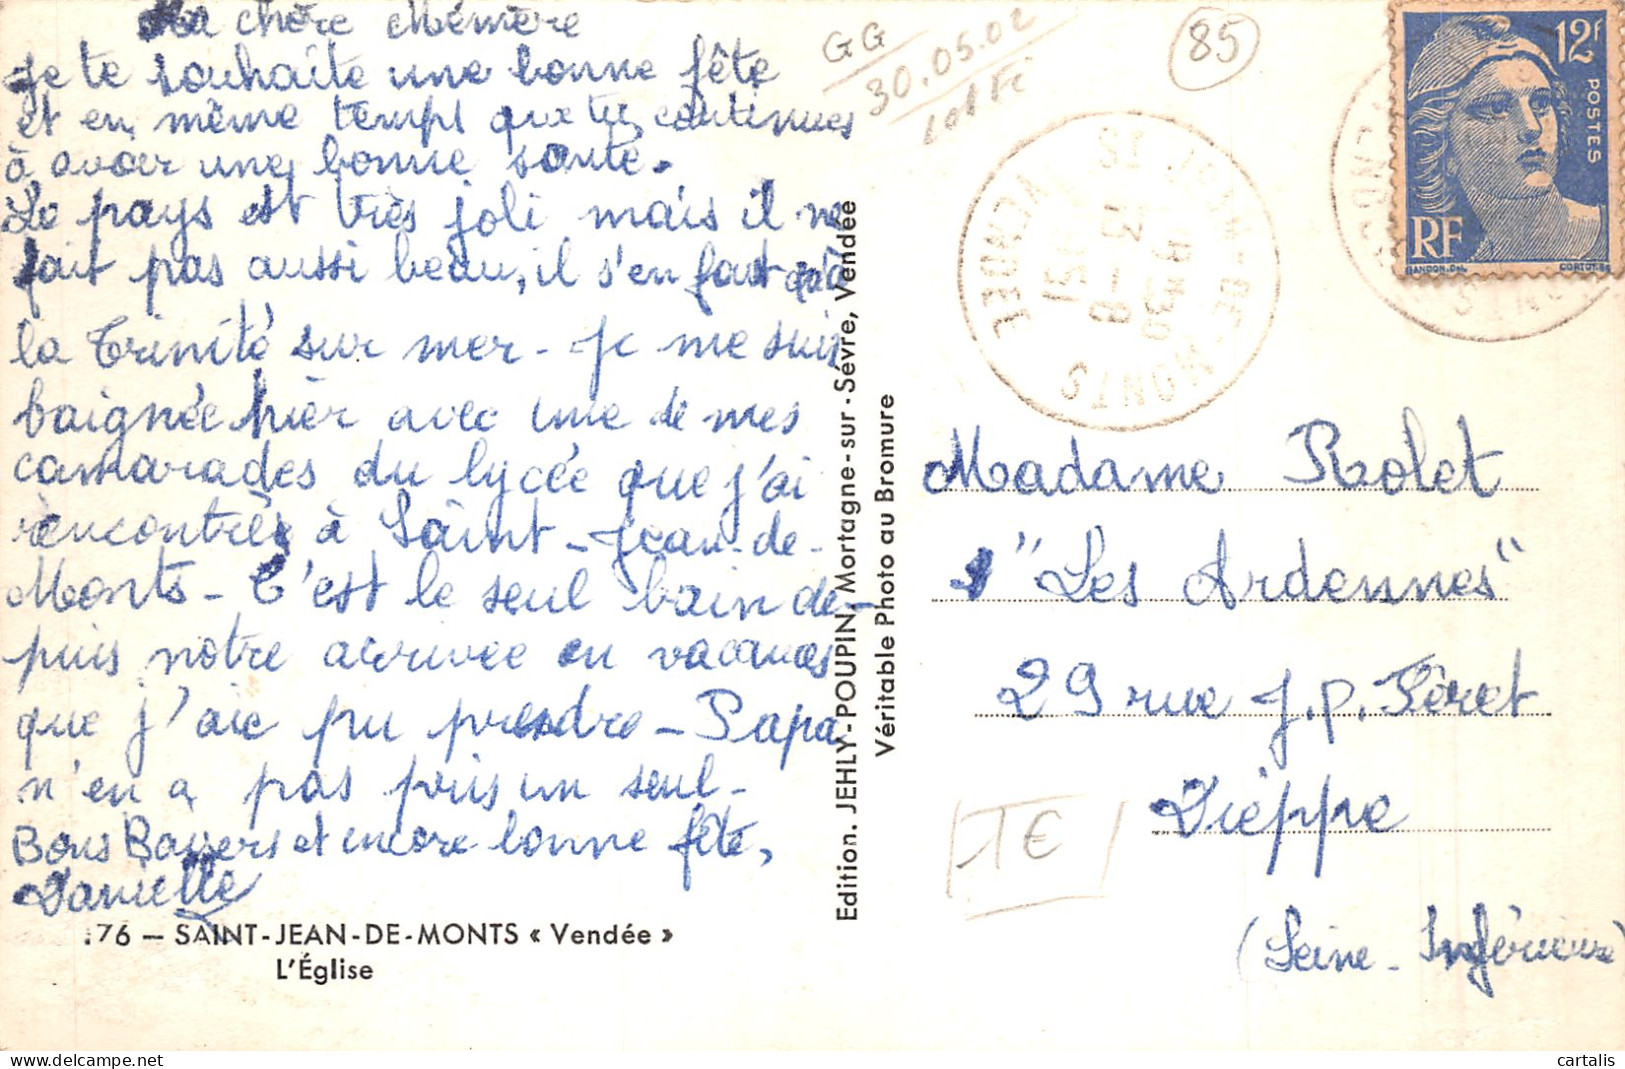 Ma chère Mémère
Je te souhaite une bonne fête
et en même temps que tu continues
à avoir une bonne santé.
Le pays est très joli mais il ne
fait pas aussi beau, il s'en faut qu'à
la Trinité sur mer - Je me suis
baignée hier avec une de mes
camarades du lycée que j'ai
rencontrés à Saint-Jean-de-
Monts - C'est le seul bain de-
puis notre arrivée en vacances
que j'aie pu prendre - Papa
n'en a pas pris un seul -
Bons Baisers et encore bonne fête,
Danielle
176 — SAINT-JEAN-DE-MONTS « Vendée »
L'Église
Edition. JEHLY-POUPIN, Mortagne-sur-Sèvre, Vendée
Véritable Photo au Bromure
GG
30.05.02
85
ST JEAN-DE-MONTS
VENDEE
13-8
1951
12F
POSTES
RF
GANDON.Del.
CORTOT.Sc
Madame Rolet
"Les Ardennes"
29 rue J.P. Féret
Dieppe
(Seine-Inférieure)
1€
cartalis